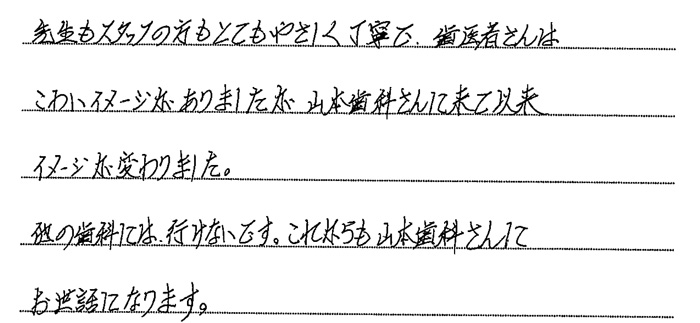 先生もスタッフの方もとてもやさしく丁寧で、歯医者さんは
こわいイメージがありましたが 山本歯科さんに来て以来
イメージが変わりました。
他の歯科には、行けないです。これからも山本歯科さんに
お世話になります。